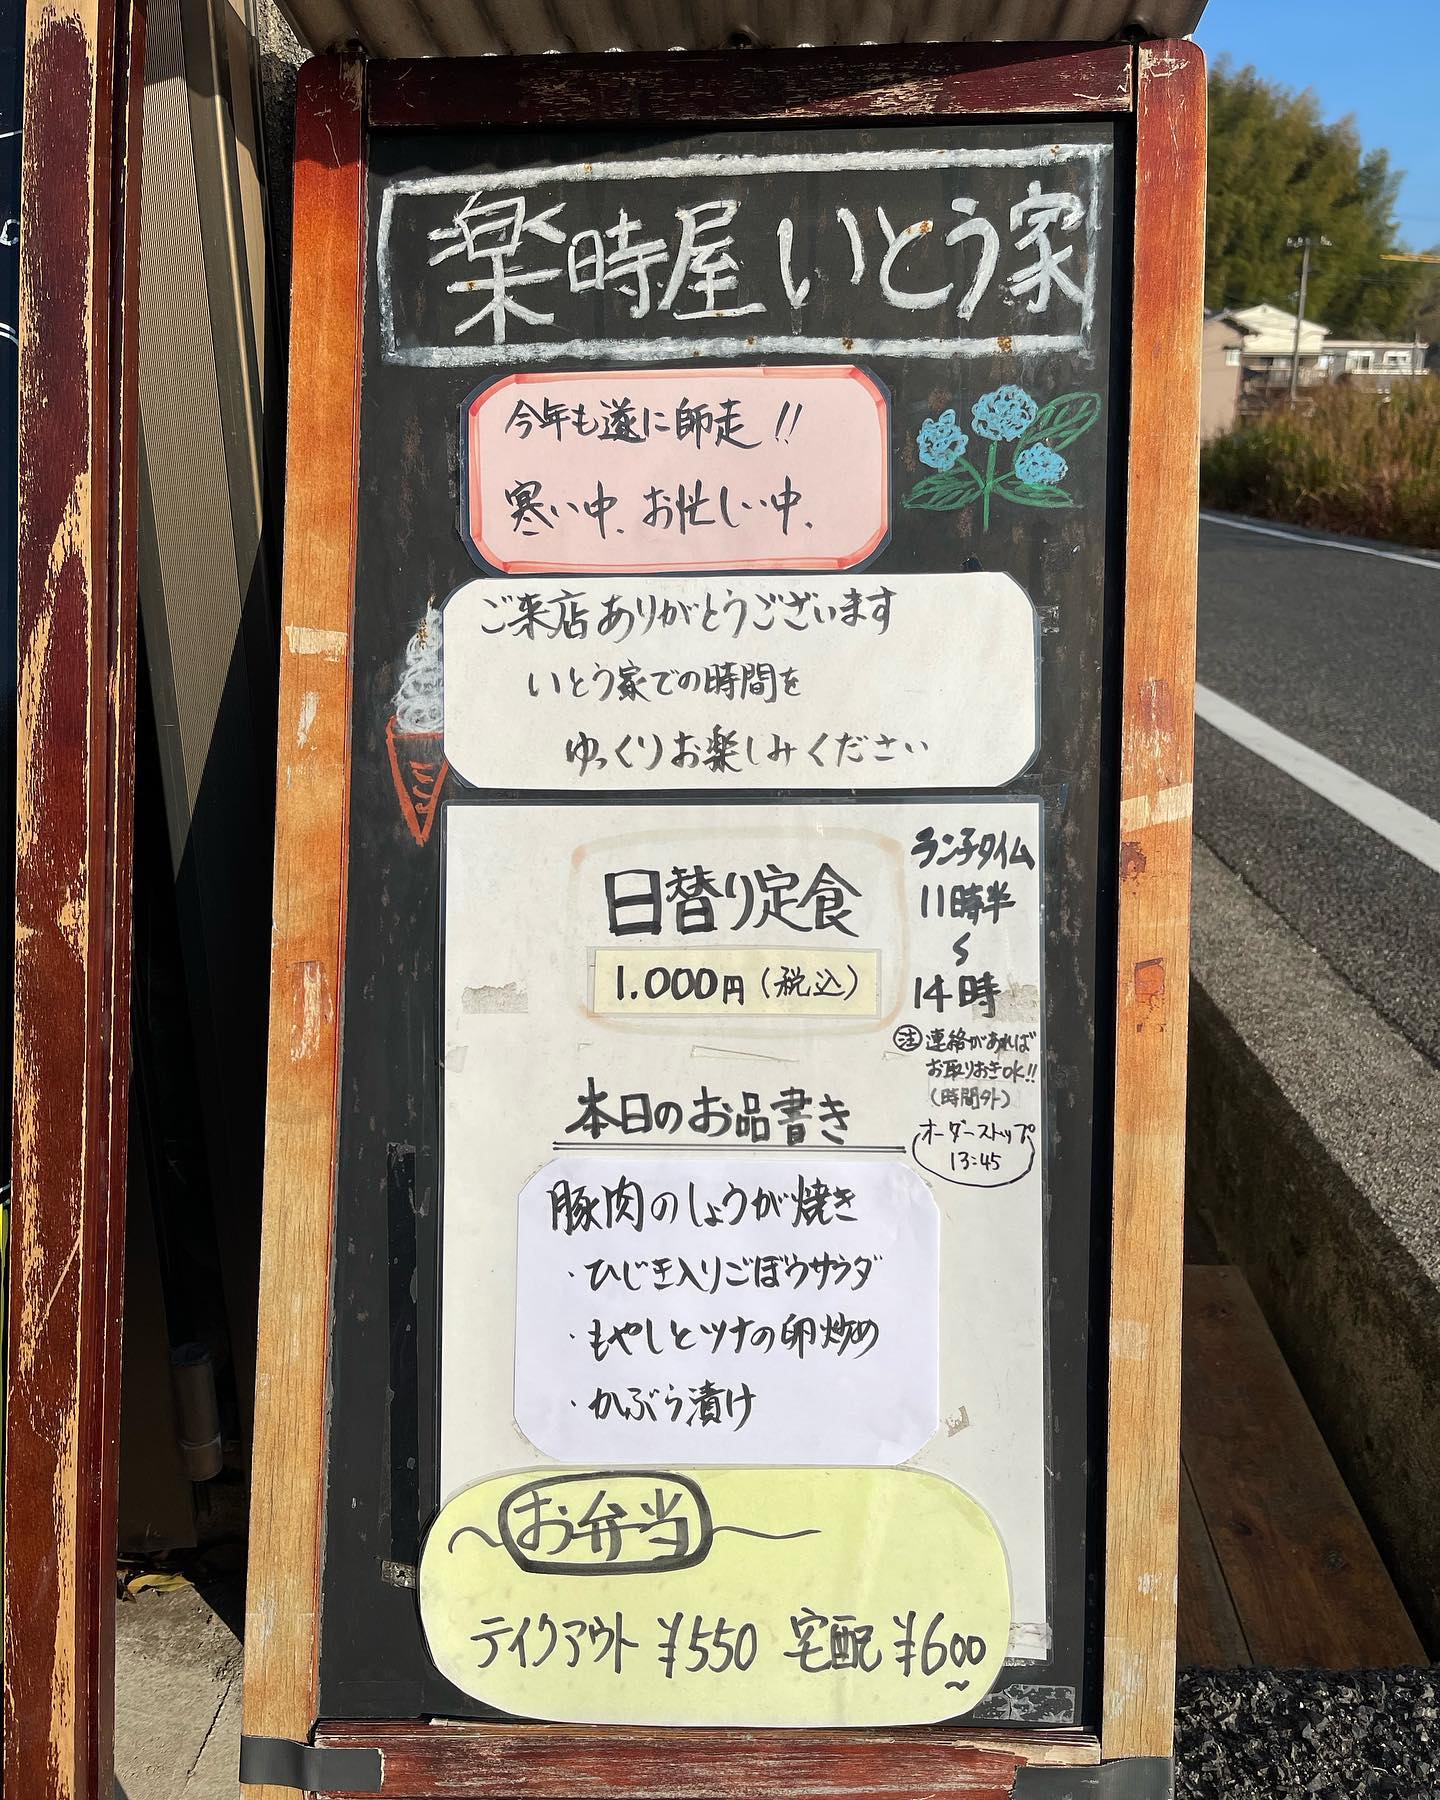 楽時屋いとう家
今年も遂に師走!!
寒い中、お忙しい中、
ご来店ありがとうございます
いとう家での時間を
ゆっくりお楽しみください
日替り定食
1.000円(税込)
ランチタイム
11時半
〜
14時
注 連絡があれば
お取りおきOK!!
(時間外)
オーダーストップ
13:45
本日のお品書き
豚肉のしょうが焼き
・ひじき入りごぼうサラダ
・もやしとツナの卵炒め
・かぶら漬け
お弁当
テイクアウト ¥550 宅配 ¥600
〜